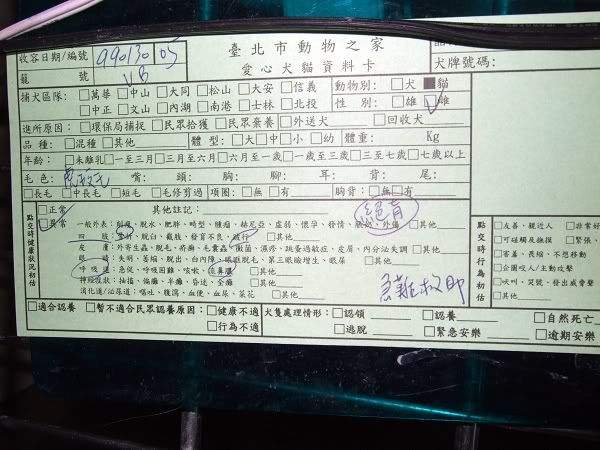 臺北市動物之家
愛心犬貓資料卡
收容日期/編號 990130 05
籠號 VB
犬牌號碼:
捕犬區隊: □萬華 □中山 □大同 □松山 □大安 □信義
□中正 □文山 □內湖 □南港 □士林 □北投
動物別: □犬 ■貓
性別: □雄 □雌
進所原因: □環保局捕捉 □民眾拾獲 □民眾棄養 □外送犬 □回收犬
品種: □混種 □其他 體型: □大 □中 □小 □幼 體重: Kg
年齡: □未離乳 □一至三月 □三月至六月 □六月至一歲 □一歲至三歲 □三至七歲 □七歲以上
毛色: 嘴: 頭: 胸: 腳: 耳: 背: 尾:
□長毛 □中長毛 □短毛 □毛修剪過 項圈: □無 □有 胸背: □無 □有
點交時健康狀況初估
□正常 其他註記:
□異常 一般外表: 脫水、肥胖、畸型、腫瘤、赫尼亞、虛弱、懷孕、發情、外傷 □其他
四肢: 脫臼、截肢、發育不良、跛行 □其他
皮膚: 外寄生蟲、脫毛、疥癬、毛囊蟲、黴菌、濕疹、跳蚤過敏症、皮屑、內分泌失調 □其他
眼睛: 失明、萎縮、脫出、白內障、眼瞼脫毛、第三眼瞼增生、眼屎 □其他
呼吸道: 急促、呼吸困難、咳嗽、流鼻膿 □其他
神經症狀: 抽搐、偏癱、半癱、昏迷、全癱 □其他
消化道/泌尿道: 嘔吐、腹瀉、血便、血尿、菜花 □其他
急難救助
點交時行為初估
□友善、親近人 □非常
□可碰觸及撫摸 □緊張、
□害羞、畏縮、不想移動
□企圖咬人/主動攻擊
□吠叫、哭號、發出威脅聲
□其他
□適合認養 □暫不適合民眾認養原因: □健康不適 □行為不適
犬隻處理情形: □認領 □認養 □自然死亡
□逃脫 □緊急安樂 □逾期安樂